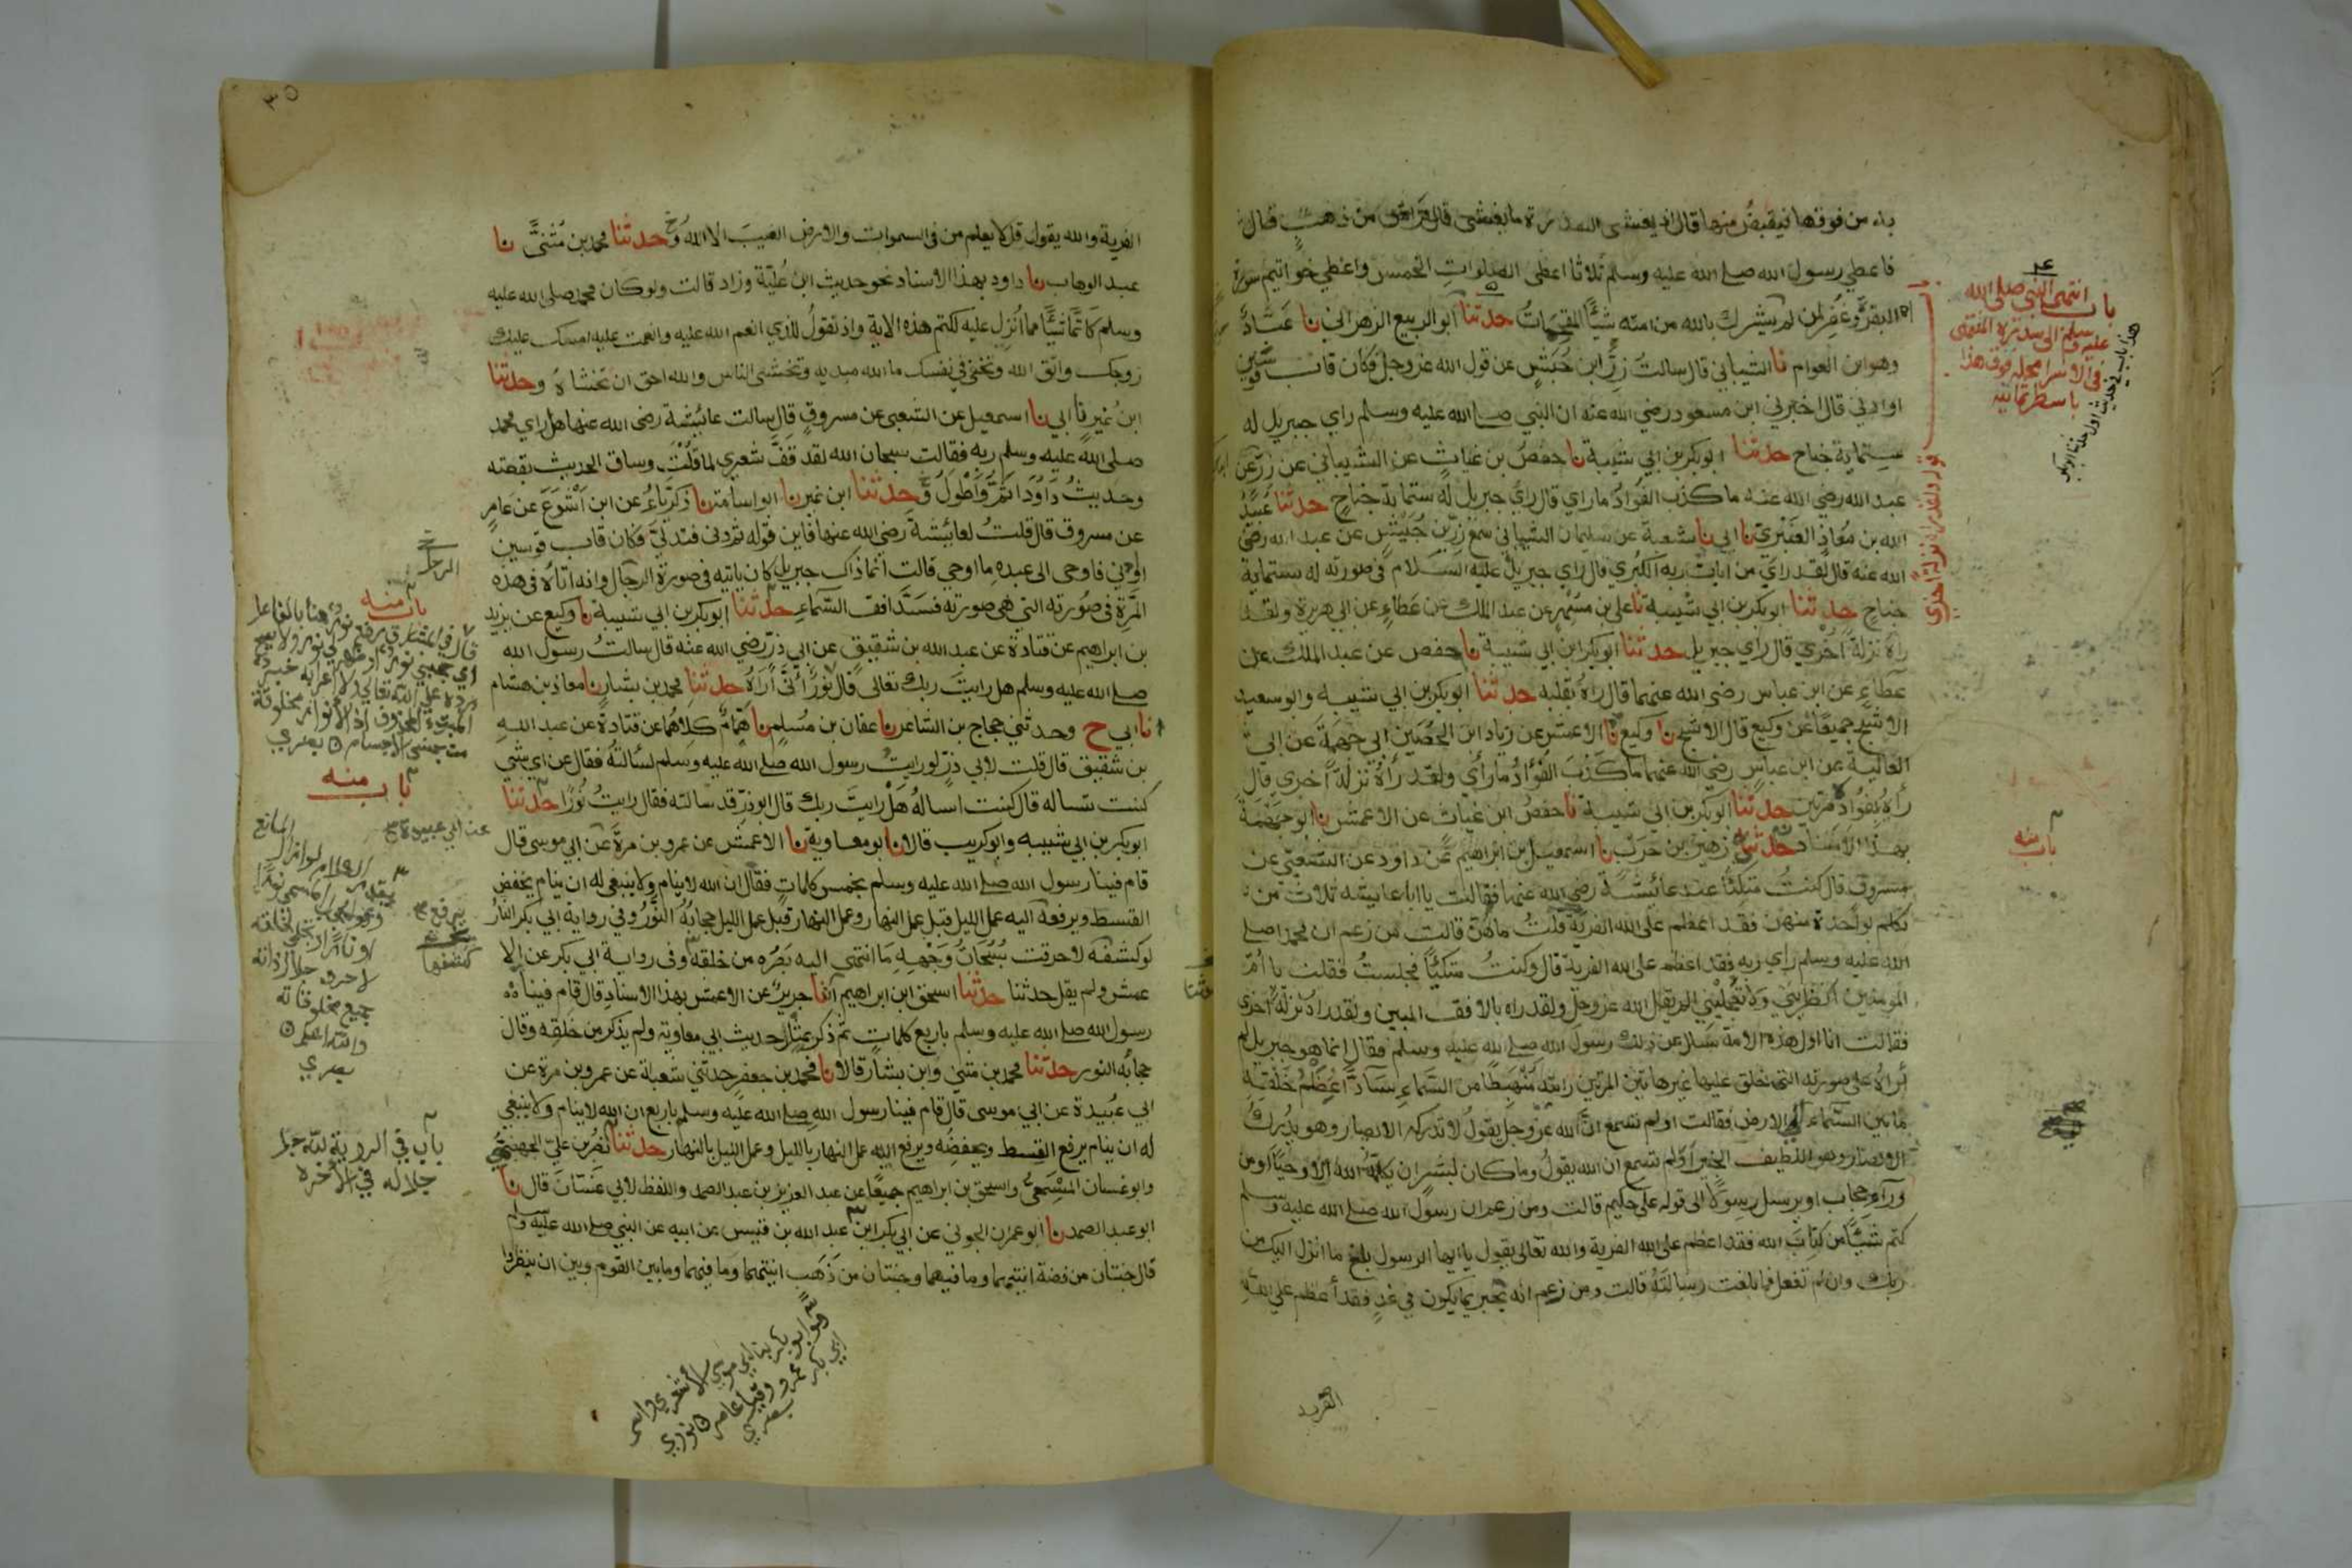 به من فوقها فيقبض منها قال اذ يغشى السدرة ما يغشى قال فراش من ذهب قال
فاعطي رسول الله صلے الله عليه وسلم ثلاثا اعطى الصلوات الخمس واعطي خواتيم سورة
البقرة وغفر لمن لم يشرك بالله من امته شيئًا المقحمات حدثنا ابو الربيع الزهراني نا عباد
وهو ابن العوام نا الشيباني قال سالت زر ابن حبيش عن قول الله عز وجل فكان قاب قوسين
او ادنى قال اخبرني ابن مسعود رضي الله عنه ان النبي صلے الله عليه وسلم راي جبريل له
ستماية جناح حدثنا ابو بكر بن ابي شيبة نا حفص بن غياث عن الشيباني عن زر عن
عبد الله رضي الله عنه ما كذب الفواد ما راي قال راي جبريل له ستماية جناح حدثنا عبيد
الله بن معاذ العنبري نا ابي نا شعبة عن سليمان الشيباني سمع زر بن حبيش عن عبد الله رضي
الله عنه قال لقد راي من ايات ربه الكبرى قال راي جبريل عليه السلام في صورته له ستماية
جناح حدثنا ابو بكر بن ابي شيبة نا علي بن مسهر عن عبد الملك عن عطاء عن ابي هريرة ولقد
راه نزلة اخرى قال راي جبريل حدثنا ابو بكر ابن ابي شيبة نا حفص عن عبد الملك عن
عطاء عن ابن عباس رضي الله عنهما قال راه بقلبه حدثنا ابو بكر بن ابي شيبه وابو سعيد
الاشج جميعًا عن وكيع قال الاشج نا وكيع نا الاعمش عن زياد ابن الحصين ابي جهمة عن ابي
العالية عن ابن عباس رضي الله عنهما ما كذب الفؤاد ما رأى ولقد رآه نزلة اخرى قال
رآه بفؤاده مرتين حدثنا ابو بكر بن ابي شيبة نا حفص ابن غياث عن الاعمش نا ابو جهمة
بهذا الاسناد حدثني زهير بن حرب نا اسمعيل بن ابراهيم عن داود عن الشعبي عن
مسروق قال كنت متكئًا عند عائشة رضي الله عنها فقالت يا ابا عايشه ثلاث من
تكلم بواحدة منهن فقد اعظم على الله الفرية قلت ما هن قالت من زعم ان محمدا صلے
الله عليه وسلم راي ربه فقد اعظم على الله الفرية قال وكنت متكئًا فجلست فقلت يا ام
المومنين انظريني ولا تعجليني الم يقل الله عز وجل ولقد راه بالافق المبين ولقد راه نزلة اخرى
فقالت انا اول هذه الامة سال عن ذلك رسول الله صلے الله عليه وسلم فقال انما هو جبريل لم
اره على صورته التي خلق عليها غير هاتين المرتين رايته منهبطا من السماء سادًّا عظم خلقه
ما بين السماء الى الارض فقالت اولم تسمع ان الله عز وجل يقول لا تدركه الابصار وهو يدرك
الابصار وهو اللطيف الخبير اولم تسمع ان الله يقول وما كان لبشر ان يكلمه الله الا وحيًا او من
ورآء حجاب او يرسل رسولا الى قوله علي حكيم قالت ومن زعم ان رسول الله صلے الله عليه وسلم
كتم شيئًا من كتاب الله فقد اعظم على الله الفرية والله تعالى يقول يا ايها الرسول بلغ ما انزل اليك من
ربك وان لم تفعل فما بلغت رسالته قالت ومن زعم انه يخبر بما يكون في غد فقد أعظم على الله
الفرية
باب انتهى النبي صلى الله
عليه وسلم الى سدرة المنتهى
في الاسرا محله فوق هذا
باسطر ثمانية
باب منه
٣٥
الفرية والله يقول قل لا يعلم من في السموات والارض الغيب الا الله وحدثنا محمد بن مثنى نا
عبد الوهاب نا داود بهذا الاسناد نحو حديث ابن علية وزاد قالت ولو كان محمد صلى الله عليه
وسلم كاتما شيئًا مما انزل عليه لكتم هذه الاية واذ تقول للذي انعم الله عليه وانعمت عليه امسك عليك
زوجك واتق الله وتخفي في نفسك ما الله مبديه وتخشى الناس والله احق ان تخشاه وحدثنا
ابن نمير نا ابي نا اسمعيل عن الشعبي عن مسروق قال سالت عائشة رضي الله عنها هل راي محمد
صلى الله عليه وسلم ربه فقالت سبحان الله لقد قف شعري لما قلت وساق الحديث بقصته
وحديث داود اتم واطول وحدثنا ابن نمير نا ابو اسامة نا زكرياء عن ابن اشوع عن عامر
عن مسروق قال قلت لعائشة رضي الله عنها فاين قوله ثم دنى فتدلى فكان قاب قوسين
او ادنى فاوحى الى عبده ما اوحى قالت انما ذاك جبريل كان ياتيه في صورة الرجال وانه اتاه في هذه
المرة في صورته التي هي صورته فسد افق السماء حدثنا ابو بكر بن ابي شيبة نا وكيع عن يزيد
بن ابراهيم عن قتادة عن عبد الله بن شقيق عن ابي ذر رضي الله عنه قال سالت رسول الله
صلے الله عليه وسلم هل رايت ربك تعالى قال نور أنى أراه حدثنا محمد بن بشار نا معاذ بن هشام
نا ابي ح وحدثني حجاج بن الشاعر نا عفان بن مسلم نا همام كلاهما عن قتادة عن عبد الله
بن شقيق قال قلت لابي ذر لو رايت رسول الله صلے الله عليه وسلم لسألته فقال عن اي شي
كنت تساله قال كنت اساله هل رايت ربك قال ابو ذر قد سالته فقال رايت نورًا حدثنا
ابو بكر بن ابي شيبه وابو كريب قالا نا ابو معاوية نا الاعمش عن عمرو بن مرة عن ابي موسى قال
قام فينا رسول الله صلے الله عليه وسلم بخمس كلمات فقال ان الله لا ينام ولا ينبغي له ان ينام يخفض
القسط ويرفعه اليه عمل الليل قبل عمل النهار وعمل النهار قبل عمل الليل حجابه النور وفي رواية ابي بكر النار
لو كشفه لاحرقت سبحات وجهه ما انتهى اليه بصره من خلقه وفي رواية ابي بكر عن الا
عمش ولم يقل حدثنا حدثنا اسحق ابن ابراهيم انا جرير عن الاعمش بهذا الاسناد قال قام فينا
رسول الله صلے الله عليه وسلم باربع كلمات ثم ذكر بمثل حديث ابي معاوية ولم يذكر من خلقه وقال
حجابه النور حدثنا محمد بن مثني وابن بشار قالا نا محمد بن جعفر حدثني شعبة عن عمرو بن مرة عن
ابي عبيدة عن ابي موسى قال قام فينا رسول الله صلے الله عليه وسلم باربع ان الله لا ينام ولا ينبغي
له ان ينام يرفع القسط ويخفضه ويرفع اليه عمل النهار بالليل وعمل الليل بالنهار حدثنا نصر بن علي الجهضمي
وابو غسان المسمعي واسحق بن ابراهيم جميعًا عن عبد العزيز بن عبد الصمد واللفظ لابي غسان قال نا
ابو عبد الصمد نا ابو عمرن الجوني عن ابي بكر ابن عبد الله بن قيس عن ابيه عن النبي صلے الله عليه وسلم
قال جنتان من فضة انيتهما وما فيهما وجنتان من ذهب انيتهما وما فيهما وما بين القوم وبين ان ينظروا
باب منه
باب منه
عن ابي عبيدة
جميع مخلوقاته
والله اعلم
باب في الروية لله جل
جلاله في الاخرة
هو ابو بكر بن ابي موسى الاشعري واسم
ابي بكر عمرو وقيل عامر نووي